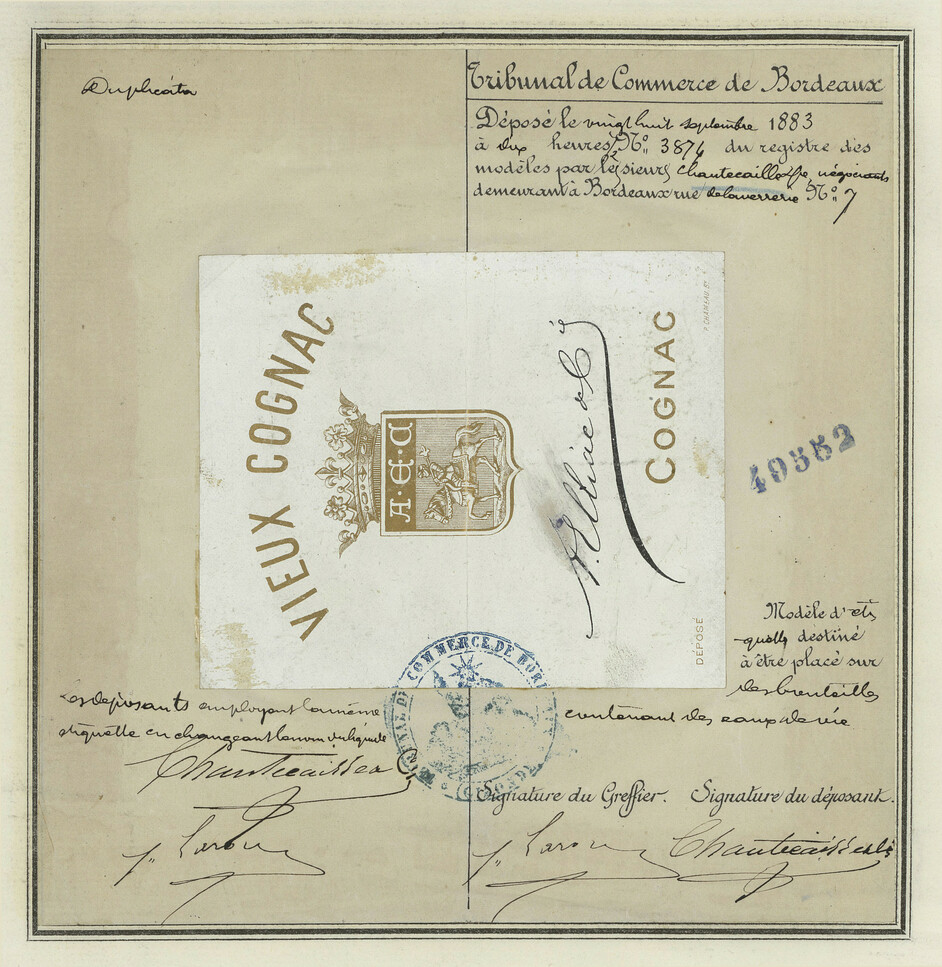 Duplicata
Tribunal de Commerce de Bordeaux
Déposé le vingt huit septembre 1883
à dix heures ½ N° 3874 du registre des
modèles par les sieurs Chantecaille & Cie, négociants
demeurant à Bordeaux rue de la verrerie N° 7
VIEUX COGNAC
A. & C
COGNAC
DÉPOSÉ
49552
Modèle d'éti
quette destiné
à être placé sur
des bouteilles
contenant des eaux de vie
Les déposants employant la même
étiquette en changeant le nom du liquide
Chantecaille
TRIBUNAL DE COMMERCE DE BORDEAUX
GIRONDE
Signature du Greffier. Signature du déposant.
Chantecaille & Cie